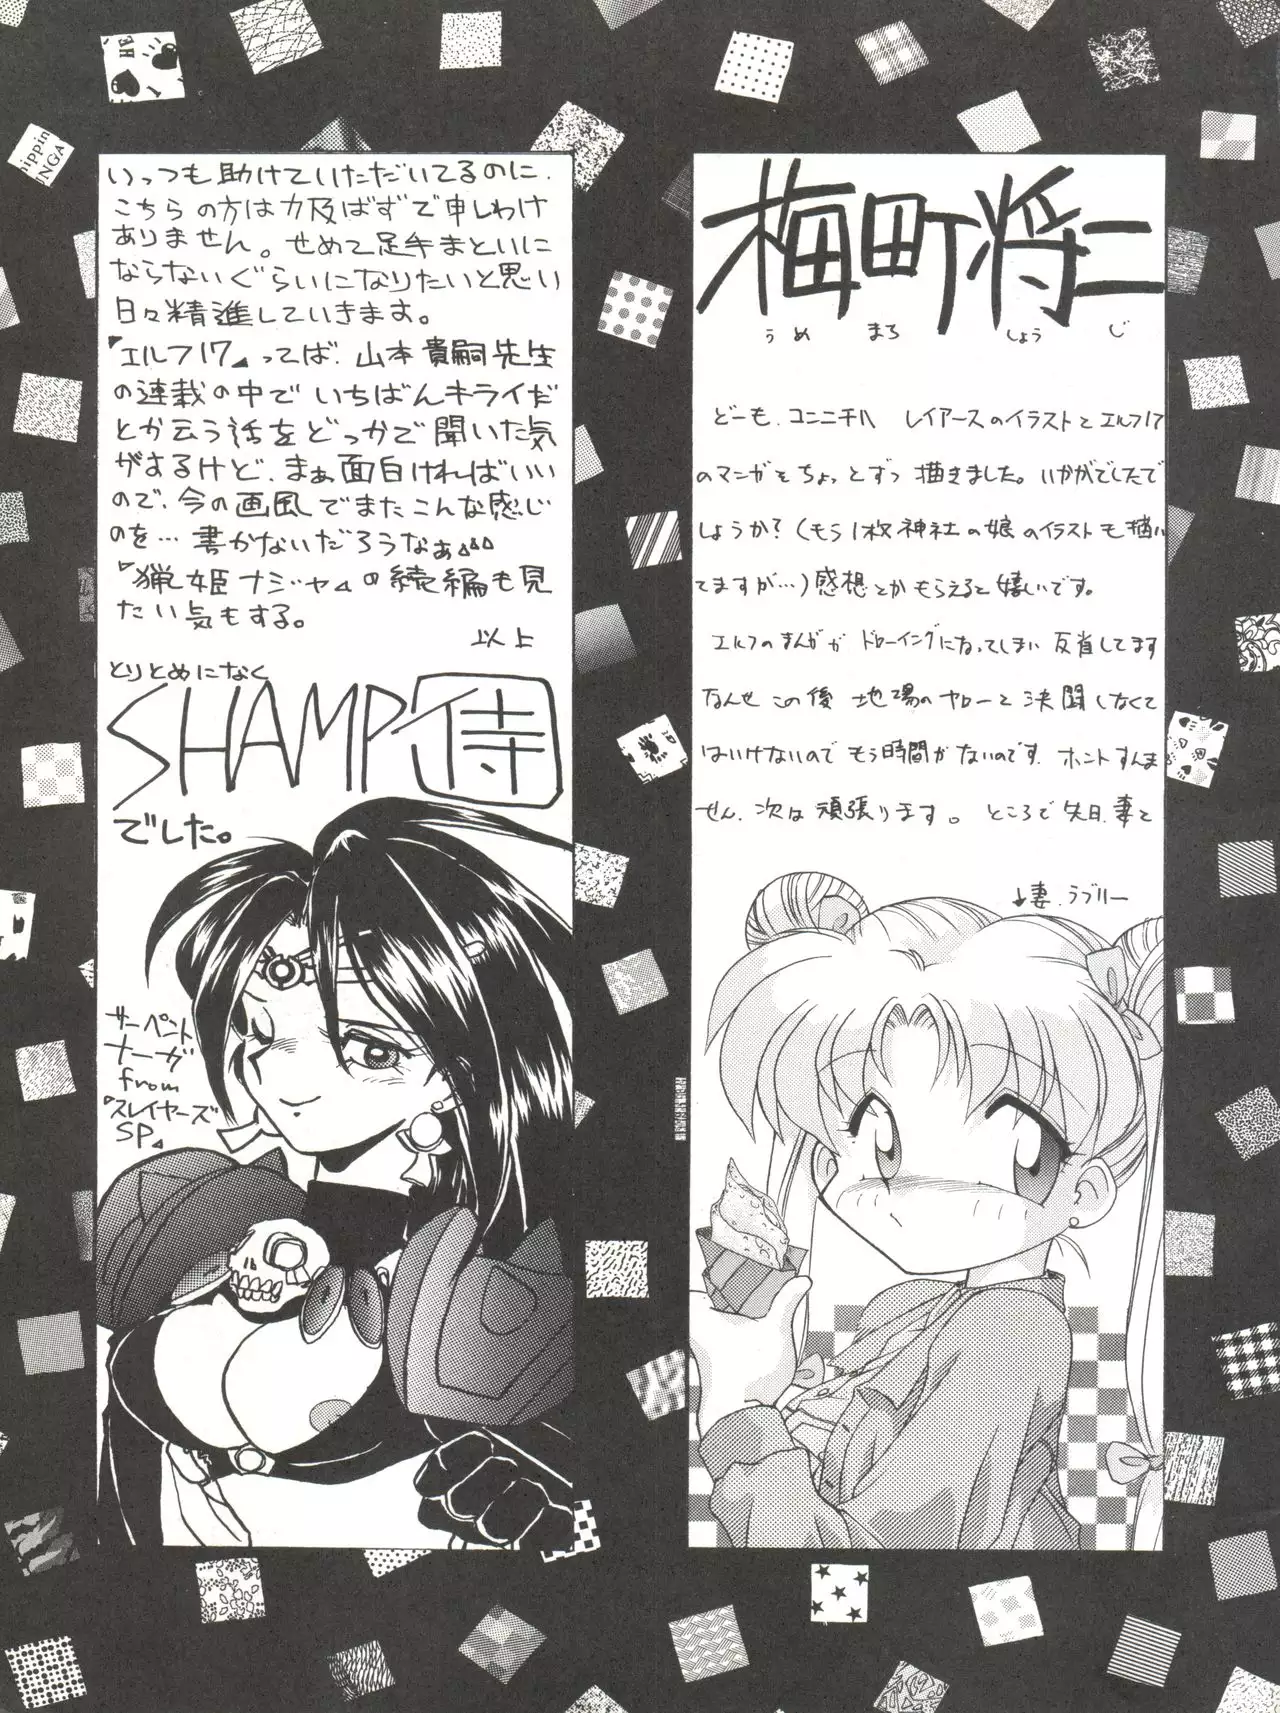 梅町将二
うめ まち しょう じ
どーも、コンニチハ レイアースのイラストとエルフ17
のマンガをちょっとずつ描きました。いかがでしたで
しょうか?(もう1枚神社の娘のイラストも描い
てますが…)感想とかもらえると嬉しいです。
エルフのまんがが ドローイングになってしまい 反省してます
なんせ この後 地場のヤローと決闘しなくて
はいけないので もう時間がないのです ホントすんま
せん、次は頑張ります。 ところで先日、妻と
↓妻、ラブリー
いっつも助けていただいてるのに、
こちらの方は力及ばずで申しわけ
ありません。せめて足手まといに
ならないぐらいになりたいと思い
日々精進していきます。
『エルフ17』ってば、山本貴嗣先生
の連載の中でいちばんキライだ
とか云う話をどっかで聞いた気
がするけど、まぁ面白ければいい
ので、今の画風でまたこんな感じ
のを…書かないだろうなぁ
『猟姫ナジャ』の続編も見
たい気もする。
以上
とりとめになく
SHAMP侍
でした。
サーペント
ナーガ
from
『スレイヤーズ
SP』
nippin
NGA